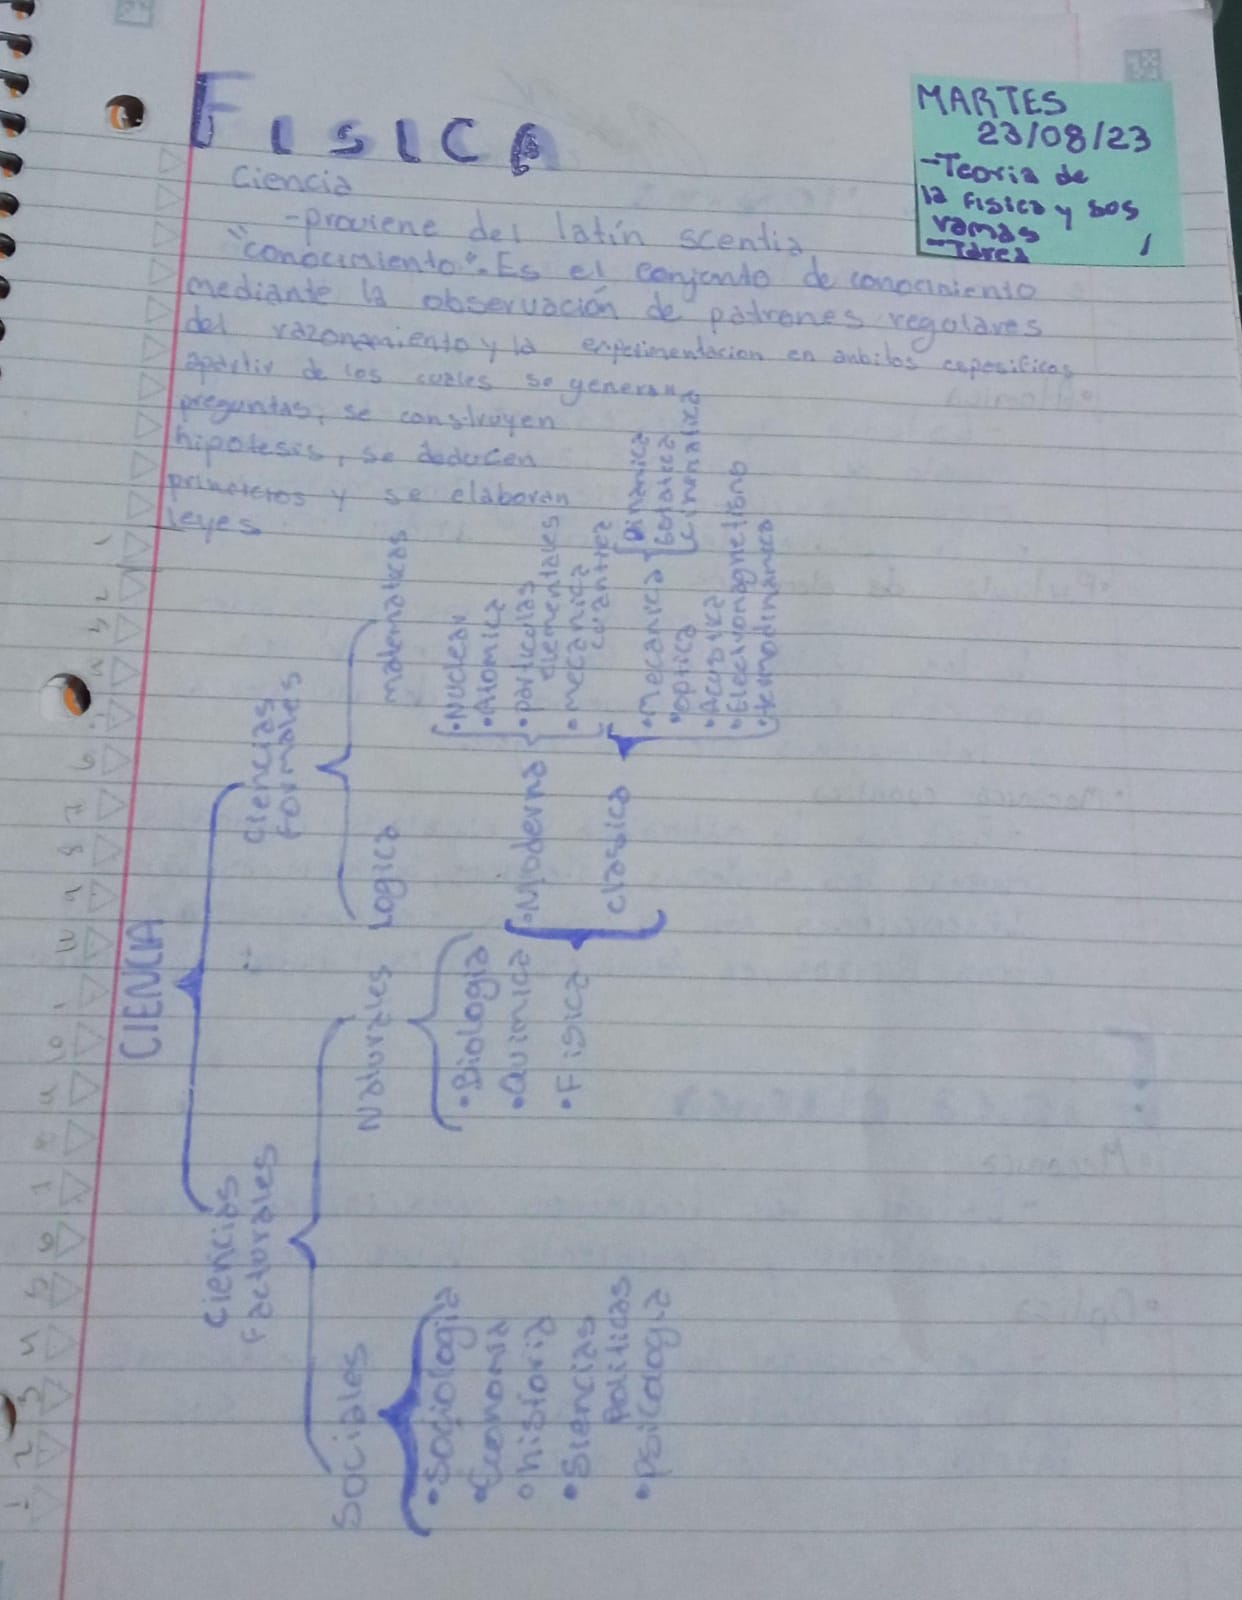 FISICA
MARTES
23/08/23
-Teoria de
la Fisica y sus
ramas
-Tarea
Ciencia
-proviene del latín scentia
"conocimiento". Es el conjunto de conocimiento
mediante la observación de patrones regulares
del razonamiento y la experimentacion en ambitos espesificos
apartir de los cuales se generan
preguntas, se construyen
hipotesis, se deducen
y se elaboran
leyes
CIENCIA
Ciencias
Factuales
Sociales
•Sociologia
•Economia
•historia
•Siencias
Politicas
•psicologia
Naturales
•Biologia
•Quimica
•Fisica
•Moderna
•Nuclear
•Atomica
•particulas
elementales
•mecanica
cuantica
clasica
•Mecanica
Dinamica
Estatica
Cinematica
•optica
•Acustica
•Electromagnetismo
•termodinamica
Ciencias
formales
Logica
matematicas